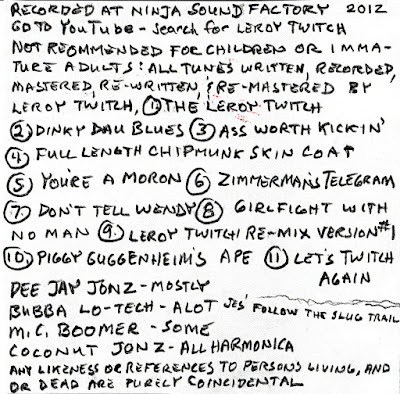 RECORDED AT NINJA SOUND FACTORY 2012
GO TO YouTube - search for LEROY TWITCH
NOT REOMMENDED FOR CHILDREN OR IMMA-
TURE ADULTS: ALL TUNES WRITTEN, RECORDED,
MASTERED, RE-WRITTEN, & RE-MASTERED BY
LEROY TWITCH, ① THE LEROY TWITCH
② DINKY DAU BLUES ③ ASS WORTH KICKIN'
④ FULL LENGTH CHIPMUNK SKIN COAT
⑤ YOU'RE A MORON ⑥ ZIMMERMAN'S TELEGRAM
⑦ DON'T TELL WENDY ⑧ GIRLFIGHT WITH
NO MAN ⑨ LEROY TWITCH RE-MIX VERSION #1
⑩ PIGGY GUGGENHEIM'S APE ⑪ LET'S TWITCH
AGAIN
DEE JAY JONZ - MOSTLY
BUBBA LO-TECH - ALOT JES' FOLLOW THE SLUG TRAIL
M.C. BOOMER - SOME
COCONUT JONZ - ALL HARMONICA
ANY LIKENESS OR REFERENCES TO PERSONS LIVING, AND
OR DEAD ARE PURELY COINCIDENTAL